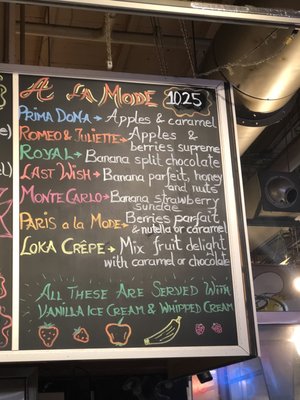 A LA MODE 10.25
PRIMA DONA → Apples & caramel
ROMEO & JULIETTE → Apples &
berries supreme
ROYAL → Banana split chocolate
LAST WISH → Banana parfeit, honey
and nuts
MONTE CARLO → Banana strawberry
sundae
PARIS a la MODE → Berries parfait,
& nutella or caramel
LOKA CRÊPE → Mix fruit delight
with caramel or chocolate
ALL THESE ARE SERVED WITH
VANILLA ICE CREAM & WHIPPED CREAM